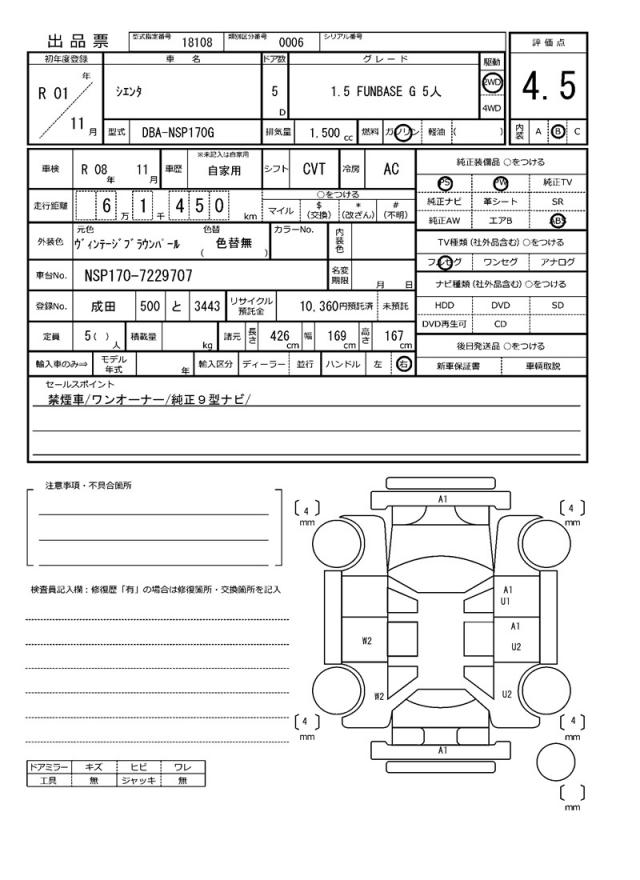 出品票
型式指定番号 18108 類別区分番号 0006 シリアル番号
評価点
4.5
内装 A B C
初年度登録 車名 ドア数 グレード 駆動
R 01 年 11 月
シエンタ
5 D
1.5 FUNBASE G 5人
2WD
4WD
型式 DBA-NSP170G 排気量 1.500 cc 燃料 ガソリン 軽油 ( )
車検 R 08 年 11 月 車歴 ※未記入は自家用 自家用 シフト CVT 冷房 AC
走行距離 6 万 1 千 4 5 0 km
○をつける
マイル $ (交換) * (改ざん) # (不明)
外装色 元色 ヴィンテージブラウンパール 色替 ( 色替無 ) カラーNo. 内装色
車台No. NSP170-7229707 名変期限 月 日
登録No. 成田 500 と 3443 リサイクル預託金 10,360円預託済 未預託
定員 5( ) 人 積載量 kg 諸元 長さ 426 cm 幅 169 cm 高さ 167 cm
輸入車のみ⇒ モデル年式 年 輸入区分 ディーラー 並行 ハンドル 左 右
純正装備品 ○をつける
PS PW 純正TV
純正ナビ 革シート SR
純正AW エアB ABS
TV種類(社外品含む) ○をつける
フルセグ ワンセグ アナログ
ナビ種類(社外品含む) ○をつける
HDD DVD SD
DVD再生可 CD
後日発送品 ○をつける
新車保証書 車輌取説
セールスポイント
禁煙車/ワンオーナー/純正９型ナビ/
注意事項・不具合箇所
検査員記入欄：修復歴「有」の場合は修復箇所・交換箇所を記入
ドアミラー キズ ヒビ ワレ
工具 無 ジャッキ 無
A1
[ 4 ] mm
[ 4 ] mm
A1
U1
A1
U2
W2
W2
U2
[ 4 ] mm
[ 4 ] mm
A1
[ ] mm